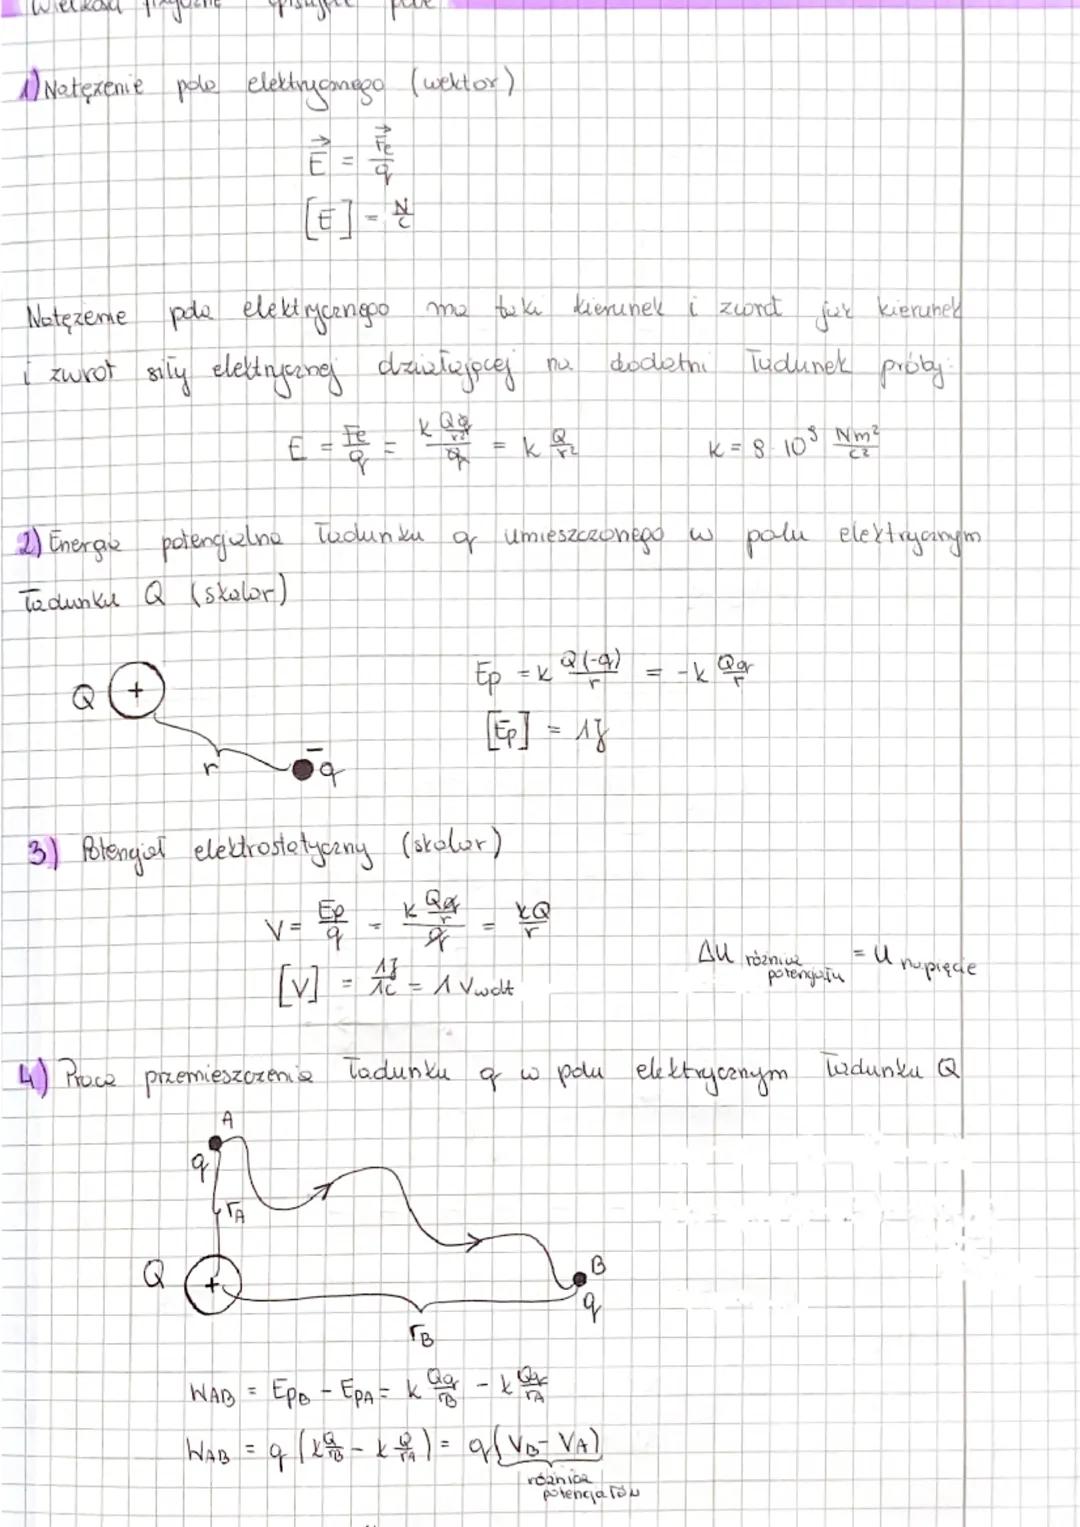 Wielkości fizyczne opisujące pole
1) Natężenie pola elektrycznego (wektor)
E = Fe/q
[E] = N/C
Natężenie pola elektrycznego ma taki kierunek i zwrot jak kierunek
i zwrot siły elektrycznej działającej na dodatni ładunek próby.
E = Fe/q = (k Qq/r²)/q = k Q/r² k = 9·10⁹ Nm²/C²
2) Energia potencjalna ładunku q umieszczonego w polu elektrycznym
ładunku Q (skalar)
Q + r - q
Ep = k Q(-q)/r = -k Qq/r
[Ep] = 1J
3) Potencjał elektrostatyczny (skalar)
V = Ep/q = (k Qq/r)/q = kQ/r
[V] = 1J/1C = 1 Vwolt
ΔU różnica potencjału = U napięcie
4) Praca przemieszczenia ładunku q w polu elektrycznym ładunku Q
A
q
rA
Q + B
q
rB
WAB = EpB - EpA = k Qq/rB - k Qq/rA
WAB = q (k Q/rB - k Q/rA) = q(VB - VA)
różnica
potencjałów